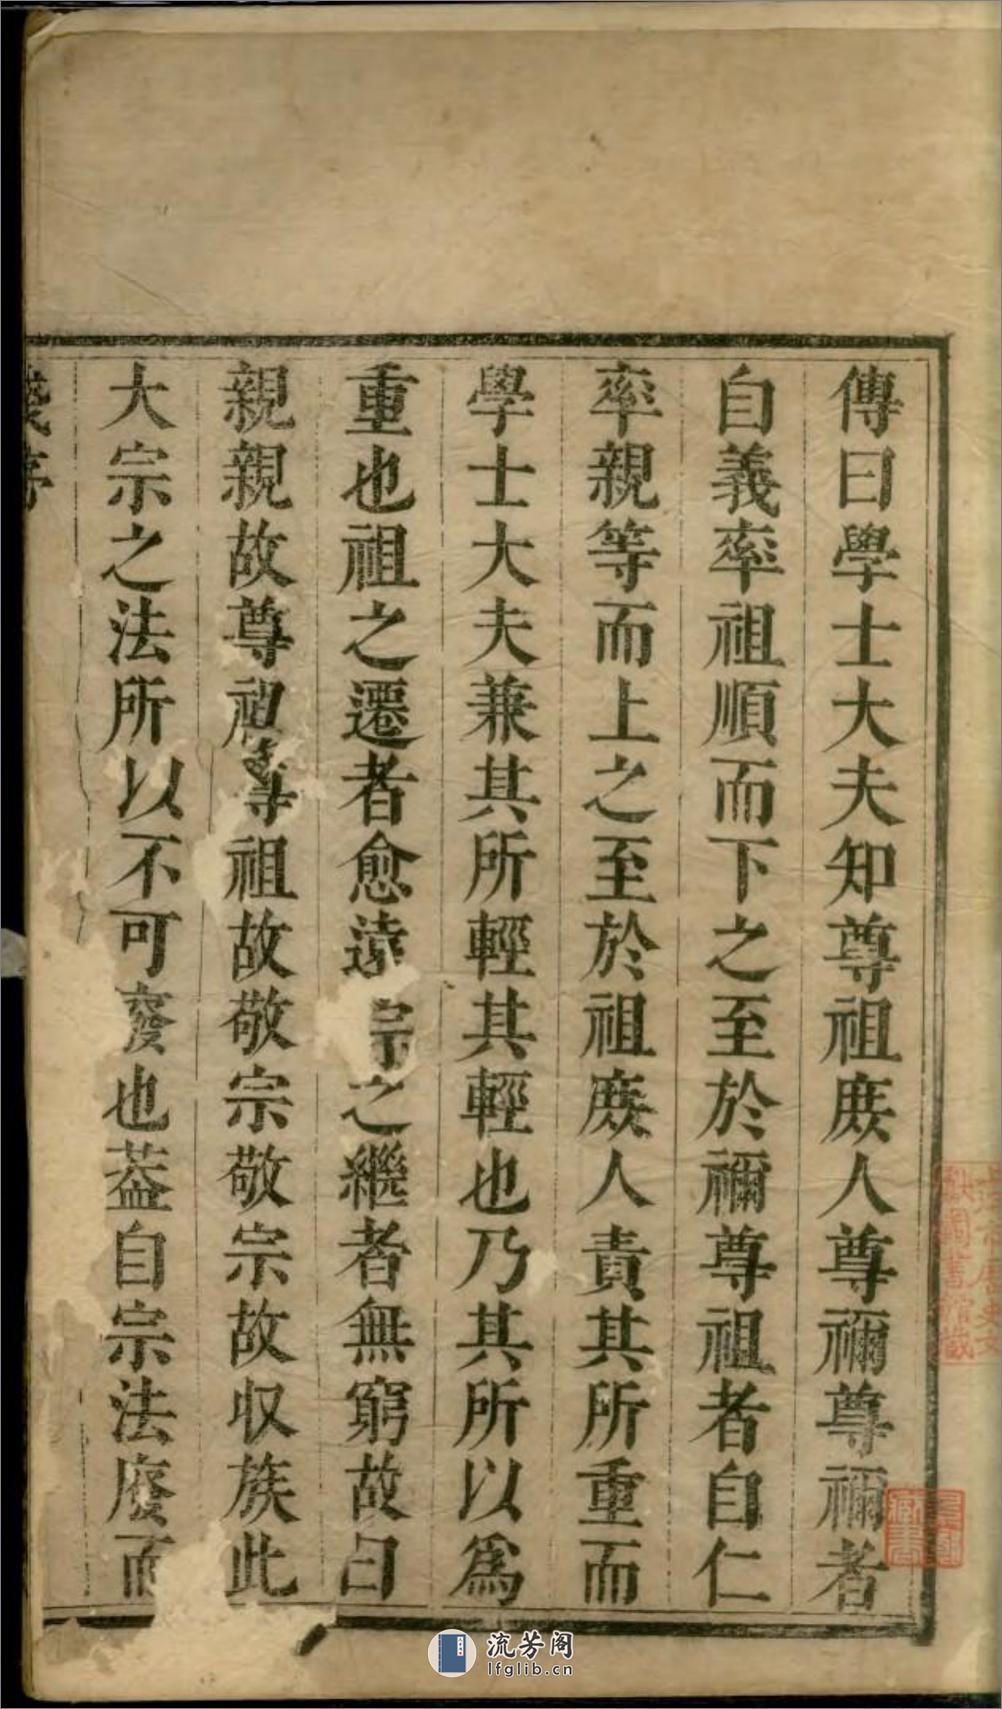 傳曰學士大夫知尊祖庶人尊禰尊禰者
自義率祖順而下之至於禰尊祖者自仁
率親等而上之至於祖庶人責其所重而
學士大夫兼其所輕其輕也乃其所以爲
重也祖之遷者愈遠宗之繼者無窮故曰
親親故尊祖尊祖故敬宗敬宗故収族此
大宗之法所以不可廢也葢自宗法廢而
流芳阁
lfglib.cn